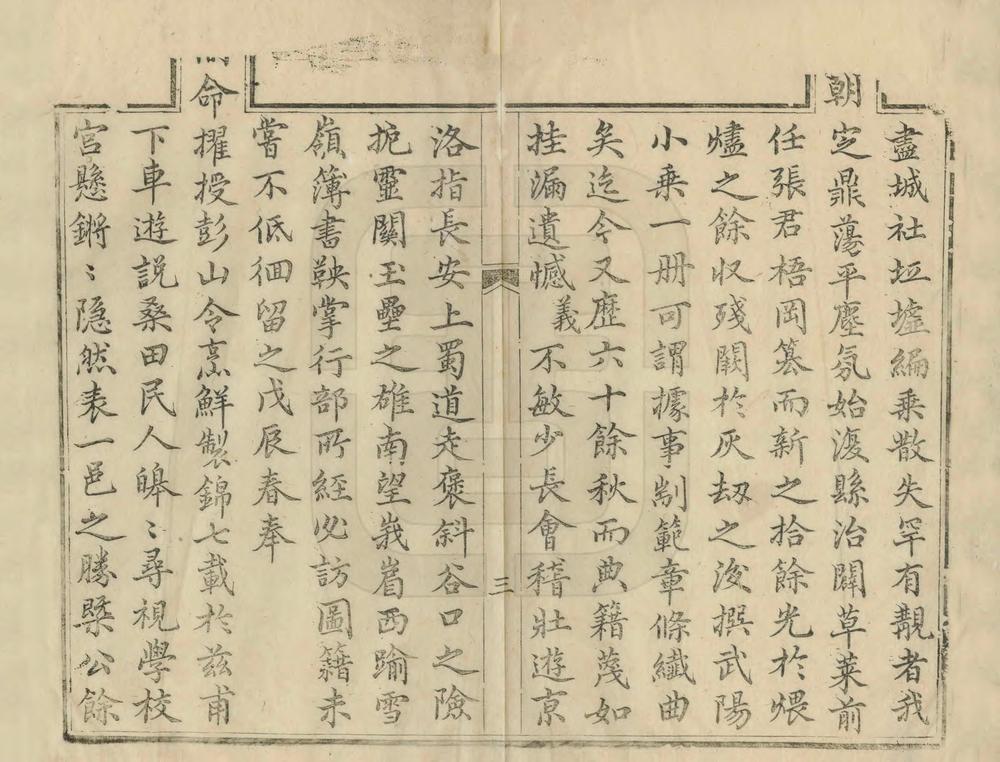 盡城社坵墟編乗散失罕有覯者我
朝定鼎蕩平塵氛始復縣治闢草萊前
任張君梧岡纂而新之拾餘光於煨
燼之餘収殘闕於灰刼之後撰武陽
小乗一册可謂據事剬範章條纎曲
矣迄今又歴六十餘秋而典籍蔑如
挂漏遺憾義不敏少長會稽壯遊京
三
洛指長安上蜀道走褒斜谷口之險
扼靈關玉壘之雄南望峩眉西踰雪
嶺簿書鞅掌行部所經必訪圖籍未
嘗不低徊留之戊辰春奉
命擢授彭山令烹鮮製錦七載於兹甫
下車遊説桑田民人皥〻尋視學校
宫懸鏘〻隐然表一邑之勝槩公餘